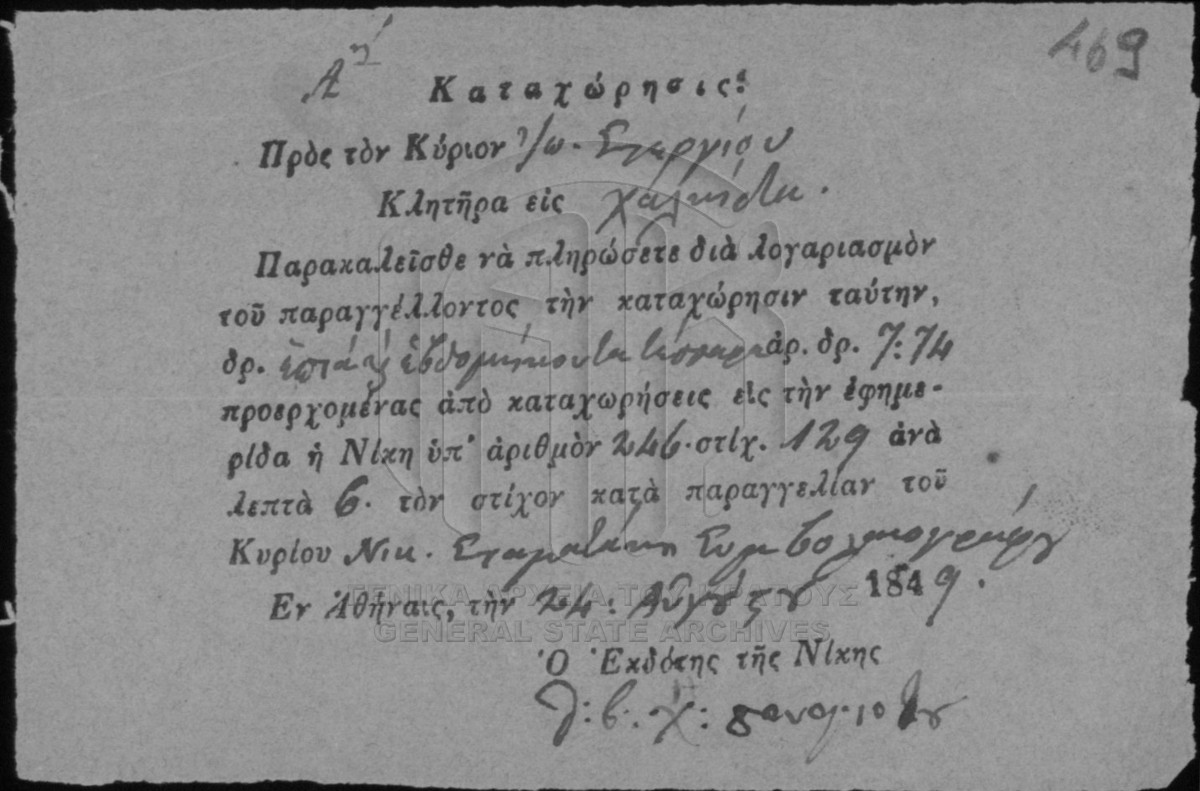 469
Αη΄
Καταχώρησις.
Πρὸς τὸν Κύριον Ἰω. Στεργίου
Κλητῆρα εἰς Χαλκίδα.
Παρακαλεῖσθε νὰ πληρώσετε διὰ λογαριασμὸν
τοῦ παραγγέλλοντος τὴν καταχώρησιν ταύτην,
δρ. ἑπτὰ & ἑβδομήκοντα τέσσαρα ἀρ. δρ. 7:74
προερχομένας ἀπὸ καταχωρήσεις εἰς τὴν ἐφημε-
ρίδα ἡ Νίκη ὑπ' ἀριθμὸν 246. στίχ. 129 ἀνὰ
λεπτὰ 6. τὸν στίχον κατὰ παραγγελίαν τοῦ
Κυρίου Νικ. Σταματάκη Συμβολαιογράφου
Εν Ἀθήναις, τὴν 24: Αὐγούστου 1849.
ΓΕΝΙΚΑ ΑΡΧΕΙΑ ΤΟΥ ΚΡΑΤΟΥΣ
GENERAL STATE ARCHIVES
Ὁ Ἐκδότης τῆς Νίκης